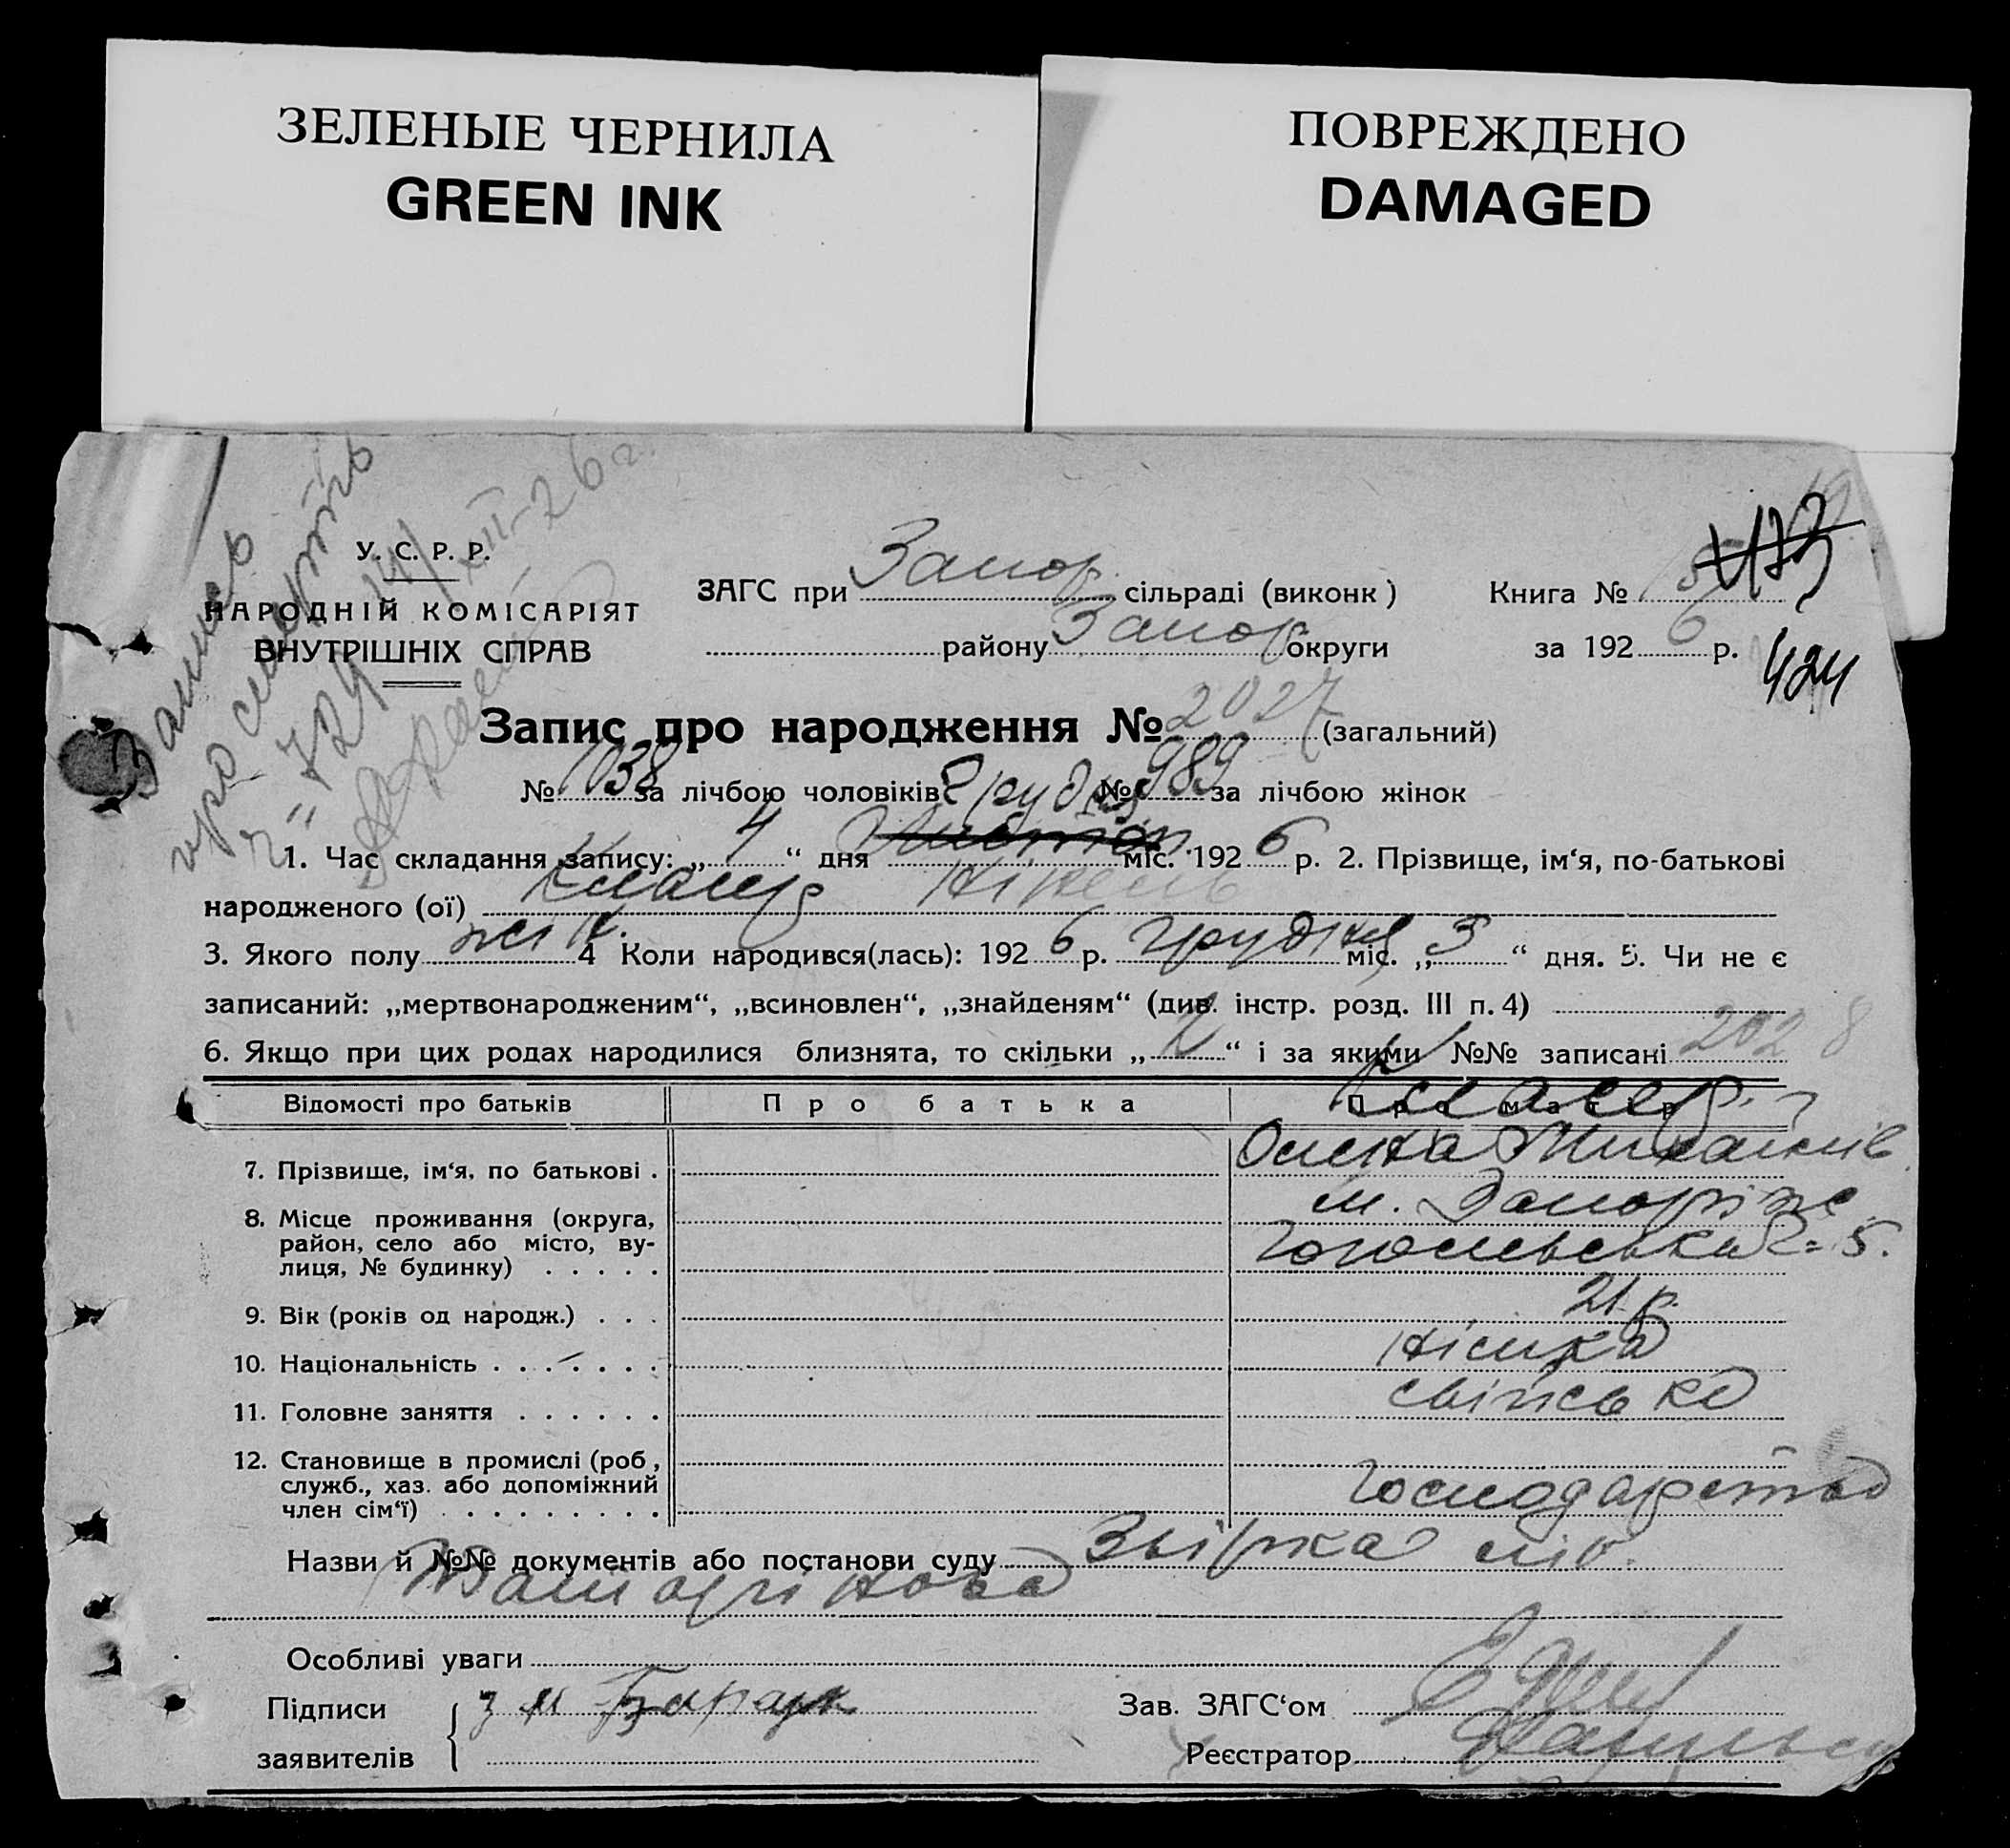 ЗЕЛЕНЫЕ ЧЕРНИЛА
GREEN INK
ПОВРЕЖДЕНО
DAMAGED
Запись
про смерть
724 14/XII-26 г.
У. С. Р. Р.
НАРОДНІЙ КОМІСАРІЯТ
ВНУТРІШНІХ СПРАВ
ЗАГС при Запор. сільраді (виконк)
району Запор округи
Книга №
за 1926 р.
424
Запис про народження № 2027 (загальний)
№ 1038 за лічбою чоловіків № 989 за лічбою жінок
грудня
1. Час складання запису: „4“ дня міс. 1926 р. 2. Прізвище, ім‘я, по-батькові
народженого (ої)
3. Якого полу жін. 4 Коли народився(лась): 1926 р. грудня міс. „3“ дня. 5. Чи не є
записаний: „мертвонародженим“, „всиновлен“, „знайденям“ (див. інстр. розд. III п. 4)
6. Якщо при цих родах народилися близнята, то скільки „2“ і за якими №№ записані 2028
Відомості про батьків Про батька Про матір
7. Прізвище, ім‘я, по батькові . Олена Михайлів.
8. Місце проживання (округа, м. Запоріжс
район, село або місто, ву-
лиця, № будинку) . . . . . Гогольська 5.
9. Вік (років од народж.) . . . 21 р.
10. Національність . . . . . . . німка
11. Головне заняття . . . . . . свійсько
12. Становище в промислі (роб,
служб., хаз. або допоміжний господарство
член сім‘ї) . . . . . . . . .
Назви й №№ документів або постанови суду Звірка
Особливі уваги
Підписи
заявителів
Зав. ЗАГС‘ом
Реєстратор